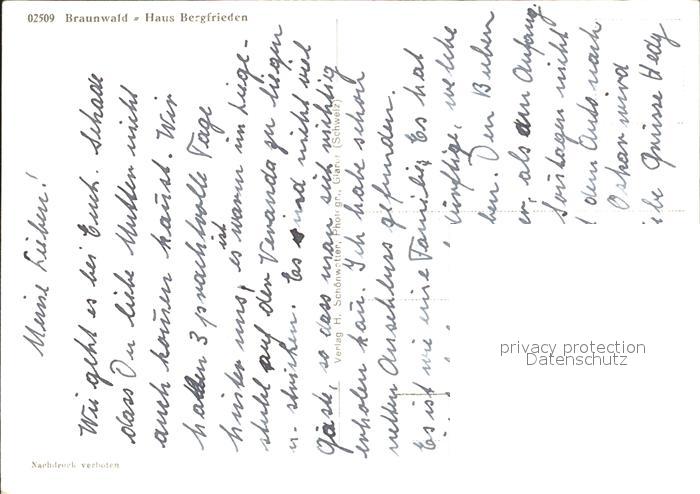 02509 Braunwald - Haus Bergfrieden
Meine Lieben!
Wie geht es bei Euch. Schade
dass Du liebe Mutter nicht
auch kommen kannst. Wir
hatten 3 prachtvolle Tage
hinter uns, es ist warm im Liege-
stuhl auf der Veranda zu liegen
u. stricken. Es sind nicht viel
Gäste, so dass man sich richtig
erholen kann. Ich habe schon
netten Anschluss gefunden.
Es ist wie eine Familie, Es hat
künftige, welche
ben. Den Buben
er, als am Anfang.
Sonntagen nicht
dem Auto nach
Oskar wird
Grüsse Hedy
Verlag H. Schönwetter, Photogr., Glarus (Schweiz)
Nachdruck verboten
privacy protection
Datenschutz